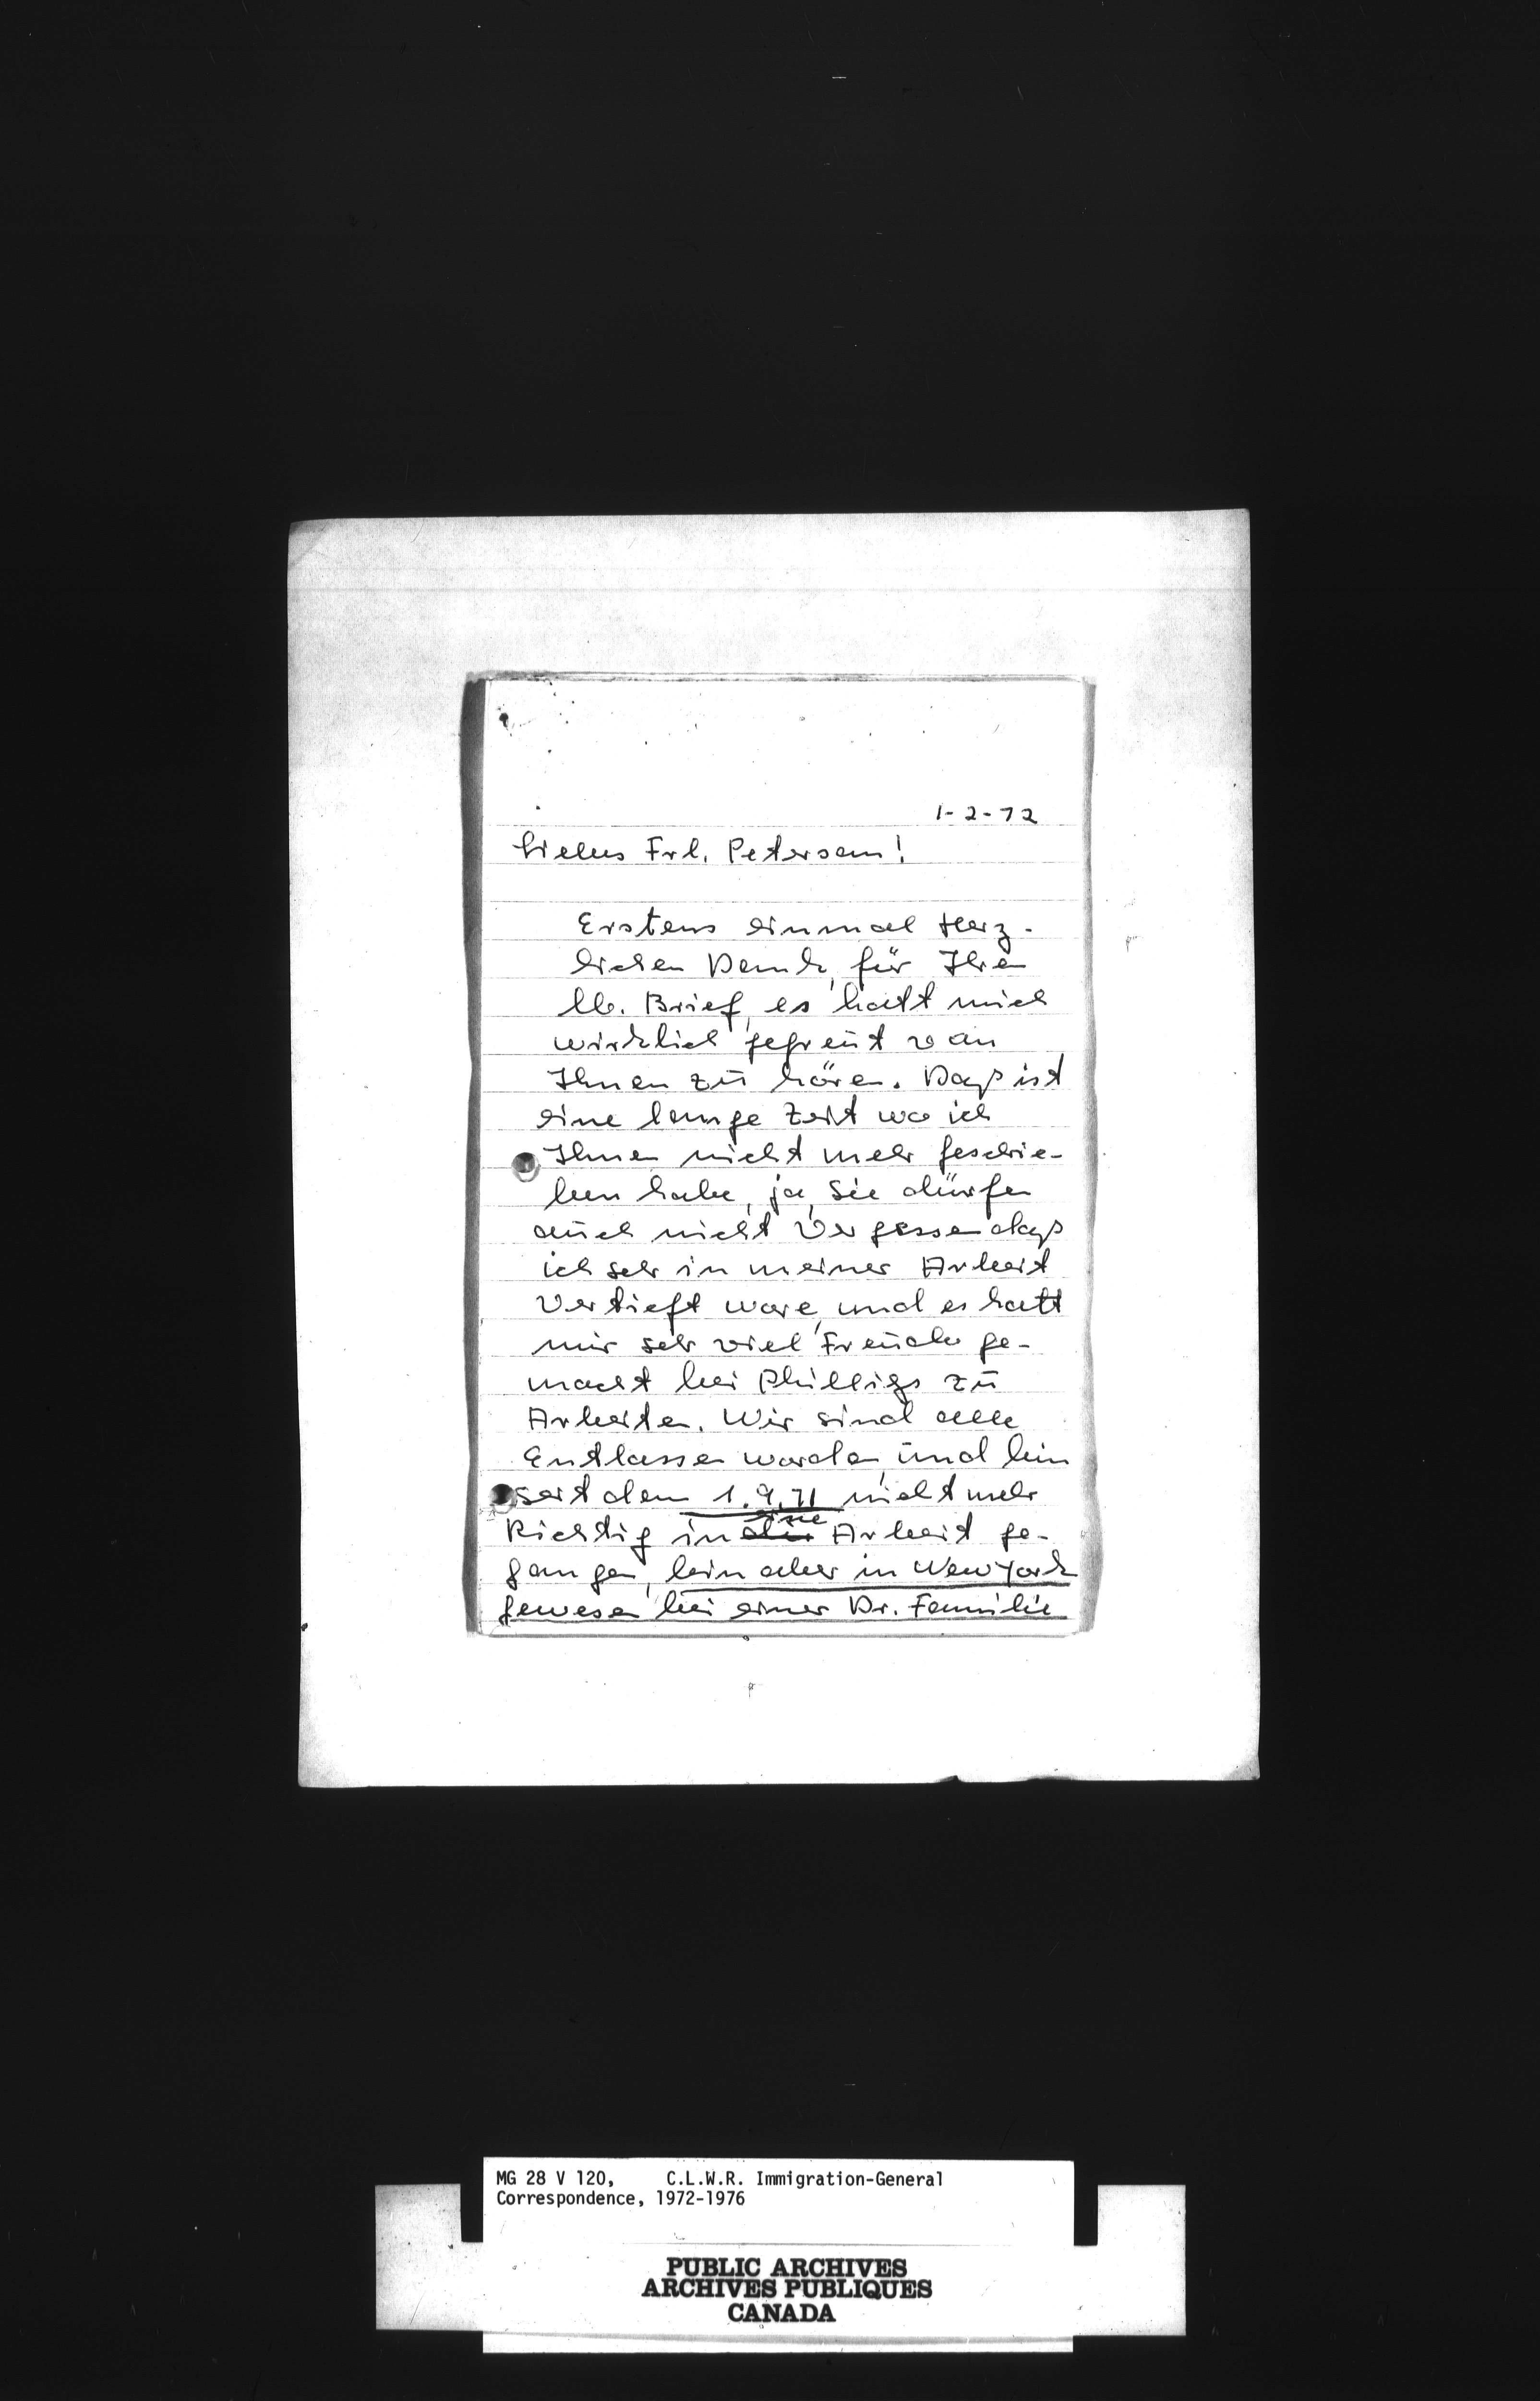 1-2-72
Liebes Frl. Petersen!
Erstens einmal Herz-
lichen Dank, für Ihren
lb. Brief, es hatt mich
wirklich gefreut von
Ihnen zu hören. Dass ist
eine lange Zeit wo ich
Ihnen nicht mehr geschrie-
ben habe, ja, Sie dürfen
auch nicht Vergessen dass
ich sehr in meiner Arbeit
Vertieft ware, und es hatt
mir sehr viel Freude ge-
macht bei Phillips zu
Arbeiten. Wir sind alle
Entlassen worden, und bin
seit dem 1.9.71 nicht mehr
Richtig in die eine Arbeit ge-
gangen, bin aber in New York
gewesen bei einer Dr. Familie
MG 28 V 120, C.L.W.R. Immigration-General
Correspondence, 1972-1976
PUBLIC ARCHIVES
ARCHIVES PUBLIQUES
CANADA